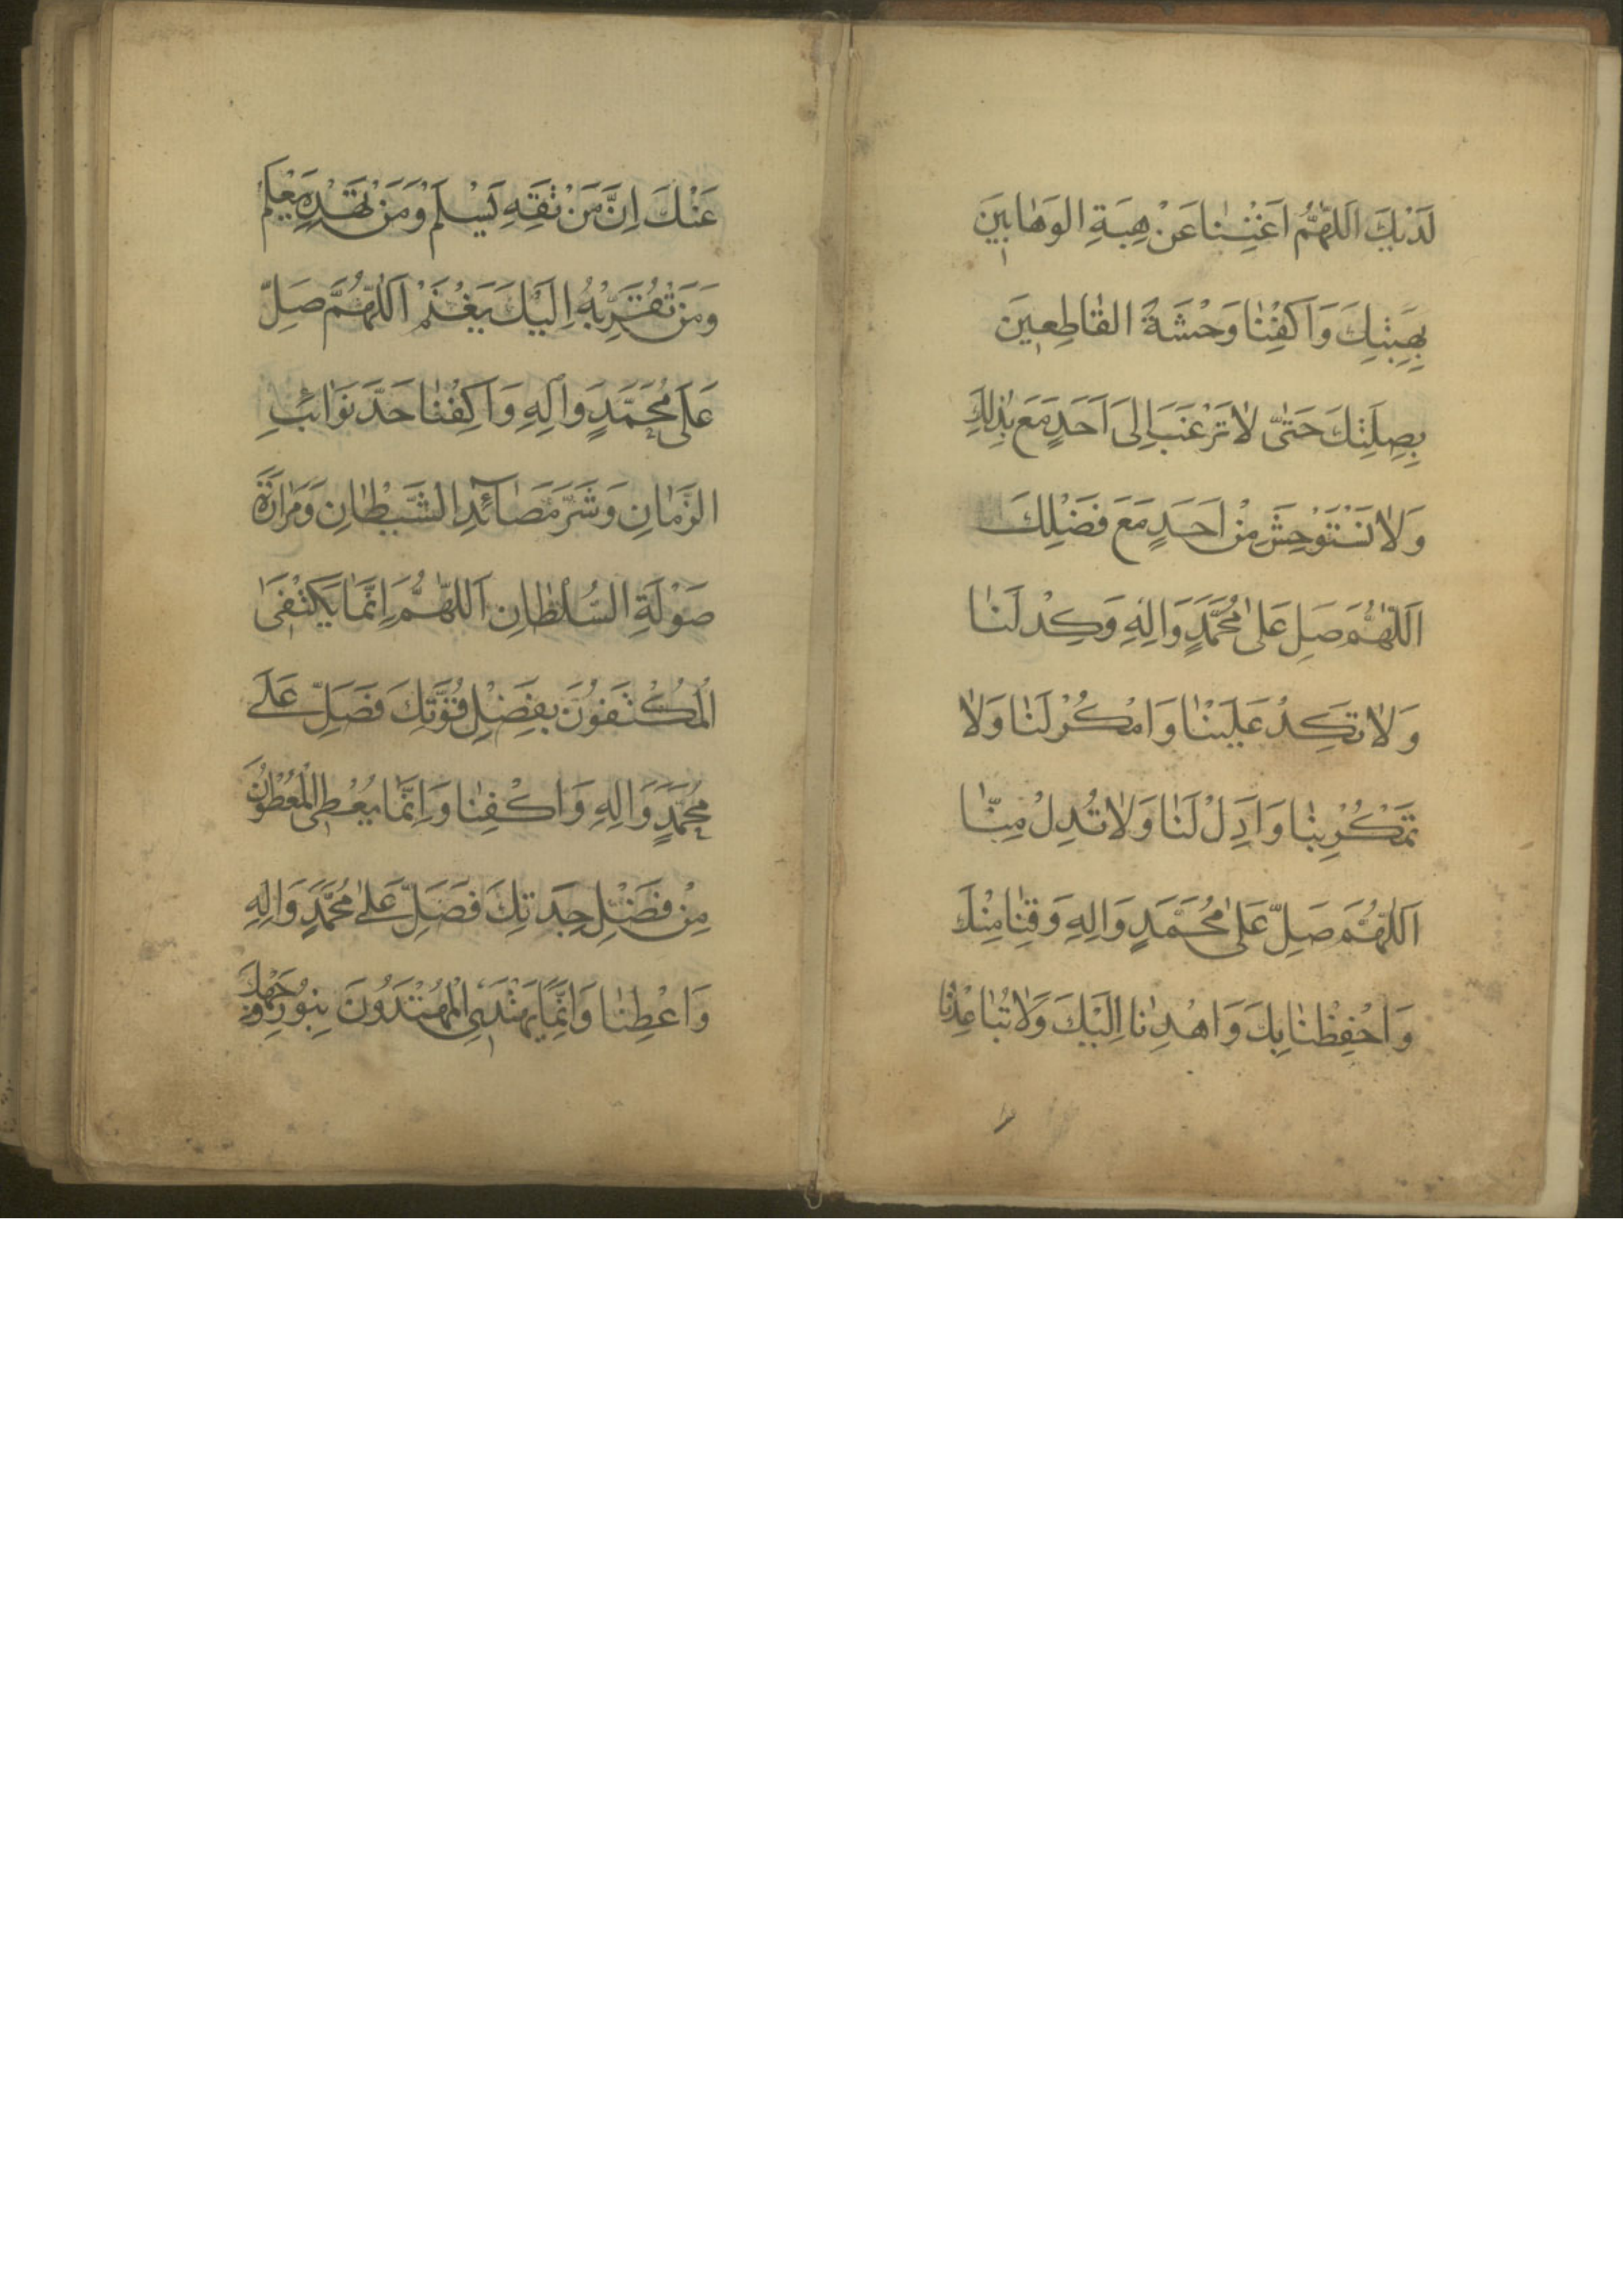 لَدَيْكَ اَللّٰهُمَّ اَغْنِنٰا عَنْ هِبَةِ الوَهّٰابينَ
بِهِبَتِكَ وَاَكْفِنٰا وَحْشَةَ القٰاطِعينَ
بِصِلَتِكَ حَتّىٰ لاٰ نَرْغَبَ اِلىٰ اَحَدٍ مَعَ بَذْلِكَ
وَلاٰ نَسْتَوْحِشَ مِنْ اَحَدٍ مَعَ فَضْلِكَ
اَللّٰهُمَّ صَلِ عَلىٰ مُحَمَّدٍ وَاٰلِهِ وَكِدْ لَنٰا
وَلاٰ تَكِدْ عَلَيْنٰا وَامْكُرْ لَنٰا وَلاٰ
تَمْكُرْ بِنٰا وَاَدِلْ لَنٰا وَلاٰ تُدِلْ مِنّٰا
اَللّٰهُمَّ صَلِّ عَلىٰ مُحَمَّدٍ وَاٰلِهِ وَقِنٰا مِنْكَ
وَاحْفِظْنٰا بِكَ وَاهْدِنٰا اِلَيْكَ وَلاٰ تُبٰاعِدْنٰا
عَنْكَ اِنَّ مَنْ تَقِهِ يَسْلَمْ وَمَنْ تَهْدِهِ يَعْلَم
وَمَنْ تُقَرِّبْهُ اِلَيْكَ يَغْنَمْ اَللّٰهُمَّ صَلِّ
عَلىٰ مُحَمَّدٍ وَاٰلِهِ وَاَكِفْنٰا حَدَّ نَوٰائِبِ
الزَّمٰانِ وَشَرَّ مَصٰآئِدِ الشَّيْطٰانِ وَمَرٰارَةَ
صَوْلَةِ السُّلْطٰانِ اَللّٰهُمَّ اِنَّمٰا يَكْتَفىٖ
اَلْمُكْتَفُونَ بِفَضْلِ قُوَّتِكَ فَصَلِّ عَلىٰ
مُحَمَّدٍ وَاٰلِهِ وَاكْفِنٰا وَاِنَّمٰا يُعْطىٖ الْمُعْطُونَ
مِنْ فَضْلِ جِدَتِكَ فَصَلِّ عَلىٰ مُحَمَّدٍ وَاٰلِهِ
وَاَعْطِنٰا وَاِنَّمٰا يَهْتَدىٖ الْمُهْتَدُونَ بِنُورِ وَجْهِكَ